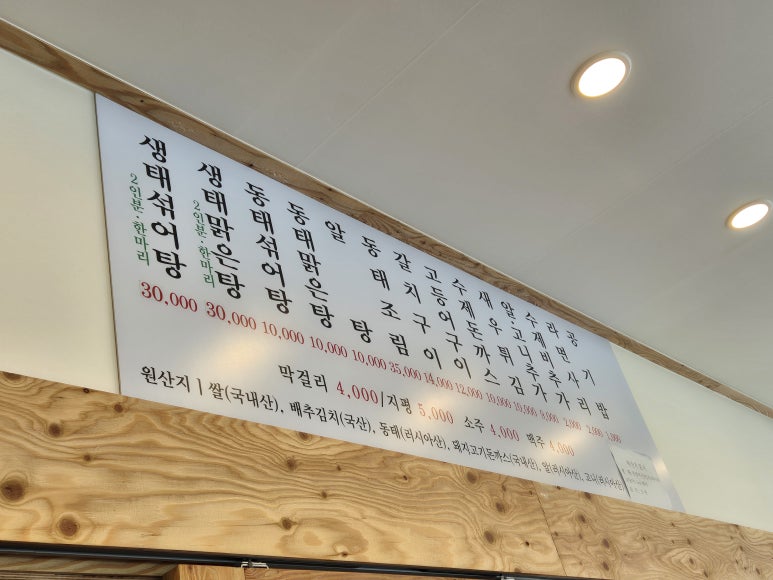 생태섞어탕
2인분·한마리
30,000
생태맑은탕
2인분·한마리
30,000
동태섞어탕
10,000
동태맑은탕
10,000
알탕
10,000
동태조림
35,000
갈치구이
14,000
고등어구이
12,000
수제돈까스
10,000
새우튀김
알·고니추가
8,000
수제비추가
2,000
라면사리
2,000
공기밥
1,000
막걸리 4,000/지평 5,000 소주 4,000 맥주 4,000
원산지ㅣ쌀(국내산), 배추김치(국산), 동태(러시아산), 돼지고기돈까스(국내산), 알(러시아산), 고니(러시아산)